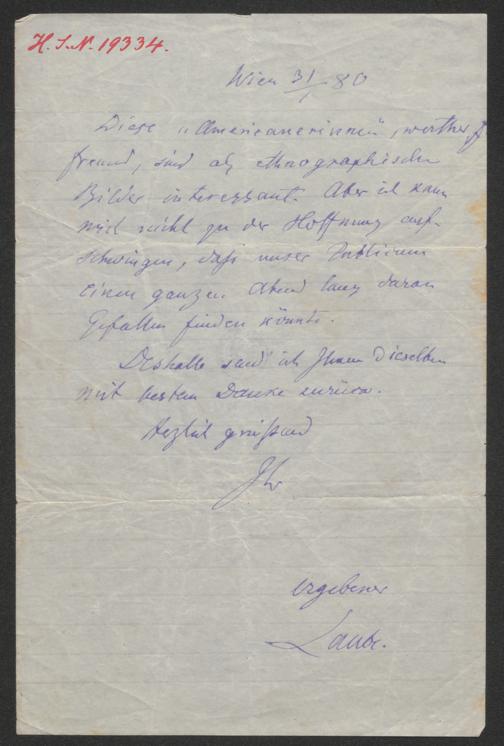 H.I.N. 19334.
Wien 31/1 80
Diese „Americanerinnen", werther
Freund, sind als ethnographische
Bilder interessant. Aber ich kann
mich nicht zu der Hoffnung auf-
schwingen, daß unser Publicum
einen ganzen Abend lang daran
Gefallen finden könnte.
Deshalb send' ich Ihnen dieselben
mit bestem Danke zurück.
Herzlich grüßend
Ihr
ergebener
Laube.